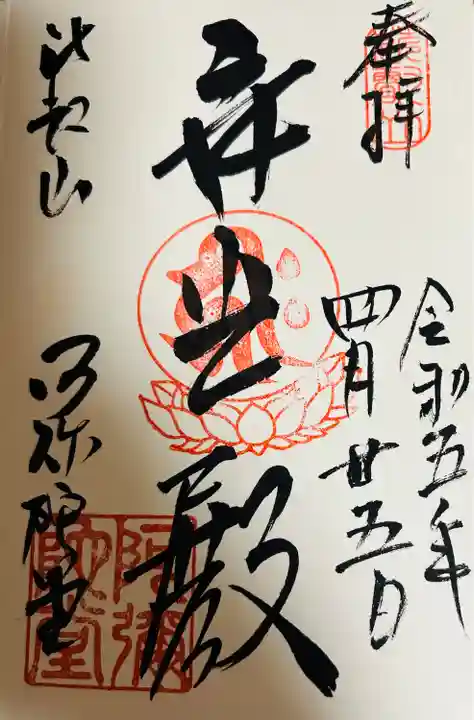 奉拝
令和五年
四月廿五日
殿
比叡山 阿弥陀堂
阿彌
陀堂